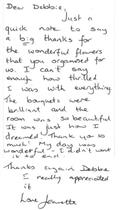 Dear Debbie,
Just a
quick note to say
a big thanks for
the wonderful flowers
that you organised for
us. I can't say
enough how thrilled
I was with everything.
The bouquets were
brilliant and the
room was so beautiful
It was just how I
dreamed! Thank you so
much! My day was
wonderful - I didn't want
it to end.
Thanks again Debbie
I really appreciated
it
Love Jennette